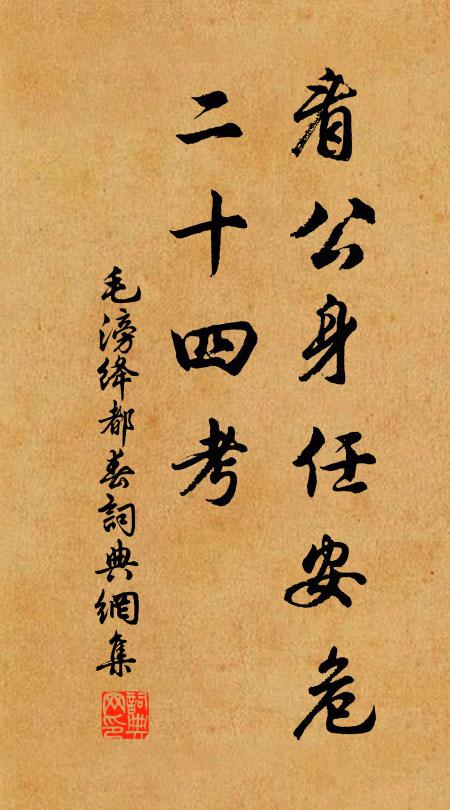 看公身任安危
二十四考
毛滂绛都春詞典網集
詞典网印